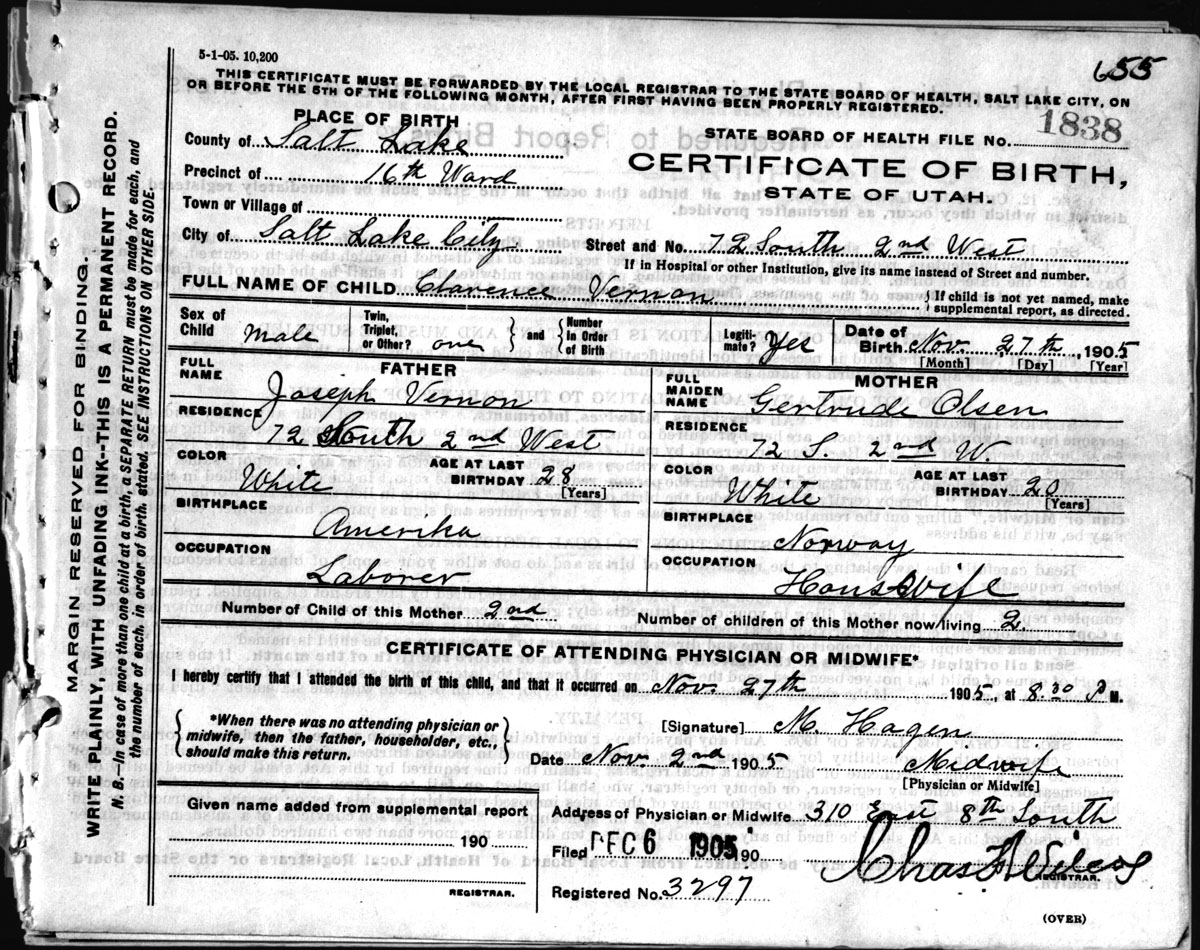 5-1-05. 10,200
655
THIS CERTIFICATE MUST BE FORWARDED BY THE LOCAL REGISTRAR TO THE STATE BOARD OF HEALTH, SALT LAKE CITY, ON
OR BEFORE THE 5TH OF THE FOLLOWING MONTH, AFTER FIRST HAVING BEEN PROPERLY REGISTERED.
PLACE OF BIRTH
STATE BOARD OF HEALTH FILE No. 1838
County of Salt Lake
CERTIFICATE OF BIRTH,
Precinct of 16th Ward
STATE OF UTAH.
Town or Village of
City of Salt Lake City Street and No. 72 South 2nd West
If in Hospital or other Institution, give its name instead of Street and number.
FULL NAME OF CHILD Clarence Vernon { If child is not yet named, make supplemental report, as directed.
Sex of Child Male Twin, Triplet, or Other? one } and { Number In Order of Birth Legitimate? Yes Date of Birth Nov. 27th, 1905
[Month] [Day] [Year]
FATHER
FULL NAME Joseph Vernon
RESIDENCE
72 South 2nd West
COLOR White AGE AT LAST BIRTHDAY 28
[Years]
BIRTHPLACE
Amerika
OCCUPATION
Laborer
MOTHER
FULL MAIDEN NAME Gertrude Olsen
RESIDENCE
72 S. 2nd W.
COLOR White AGE AT LAST BIRTHDAY 20
[Years]
BIRTHPLACE
Norway
OCCUPATION
Houswife
Number of Child of this Mother 2nd Number of children of this Mother now living 2.
CERTIFICATE OF ATTENDING PHYSICIAN OR MIDWIFE*
I hereby certify that I attended the birth of this child, and that it occurred on Nov. 27th 1905, at 8.30 P M.
{ *When there was no attending physician or
midwife, then the father, householder, etc.,
should make this return. }
[Signature] M. Hagen
Date Nov 2nd 1905 Midwife
[Physician or Midwife]
Given name added from supplemental report
190
REGISTRAR.
Address of Physician or Midwife 310 East 8th South
Filed DEC 6 1905 190
Chas
REGISTRAR.
Registered No. 3297
(OVER)
MARGIN RESERVED FOR BINDING.
WRITE PLAINLY, WITH UNFADING INK--THIS IS A PERMANENT RECORD.
N. B.—In case of more than one child at a birth, a SEPARATE RETURN must be made for each, and
the number of each, in order of birth, stated. SEE INSTRUCTIONS ON OTHER SIDE.